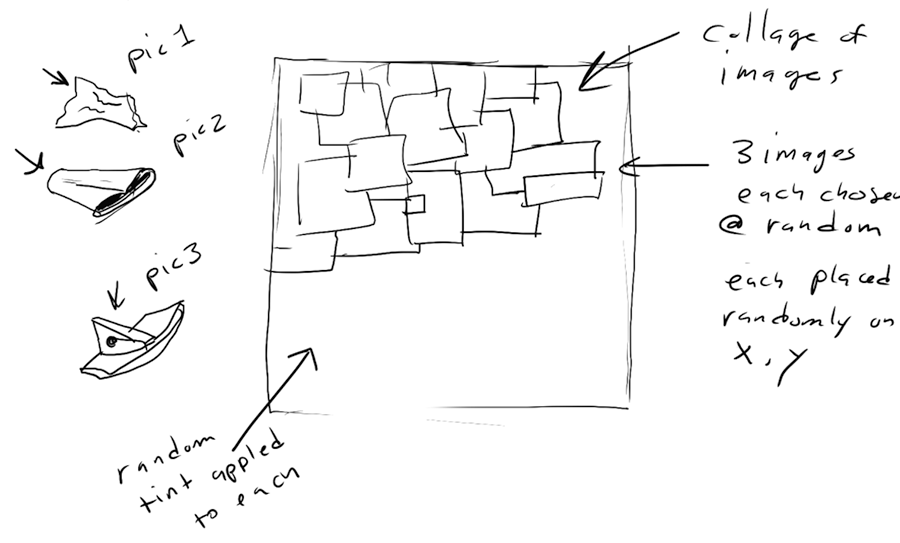 pic1
pic2
pic3
collage of
images
3 images
each chosen
@ random
each placed
randomly on
x, y
random
tint appled
to each